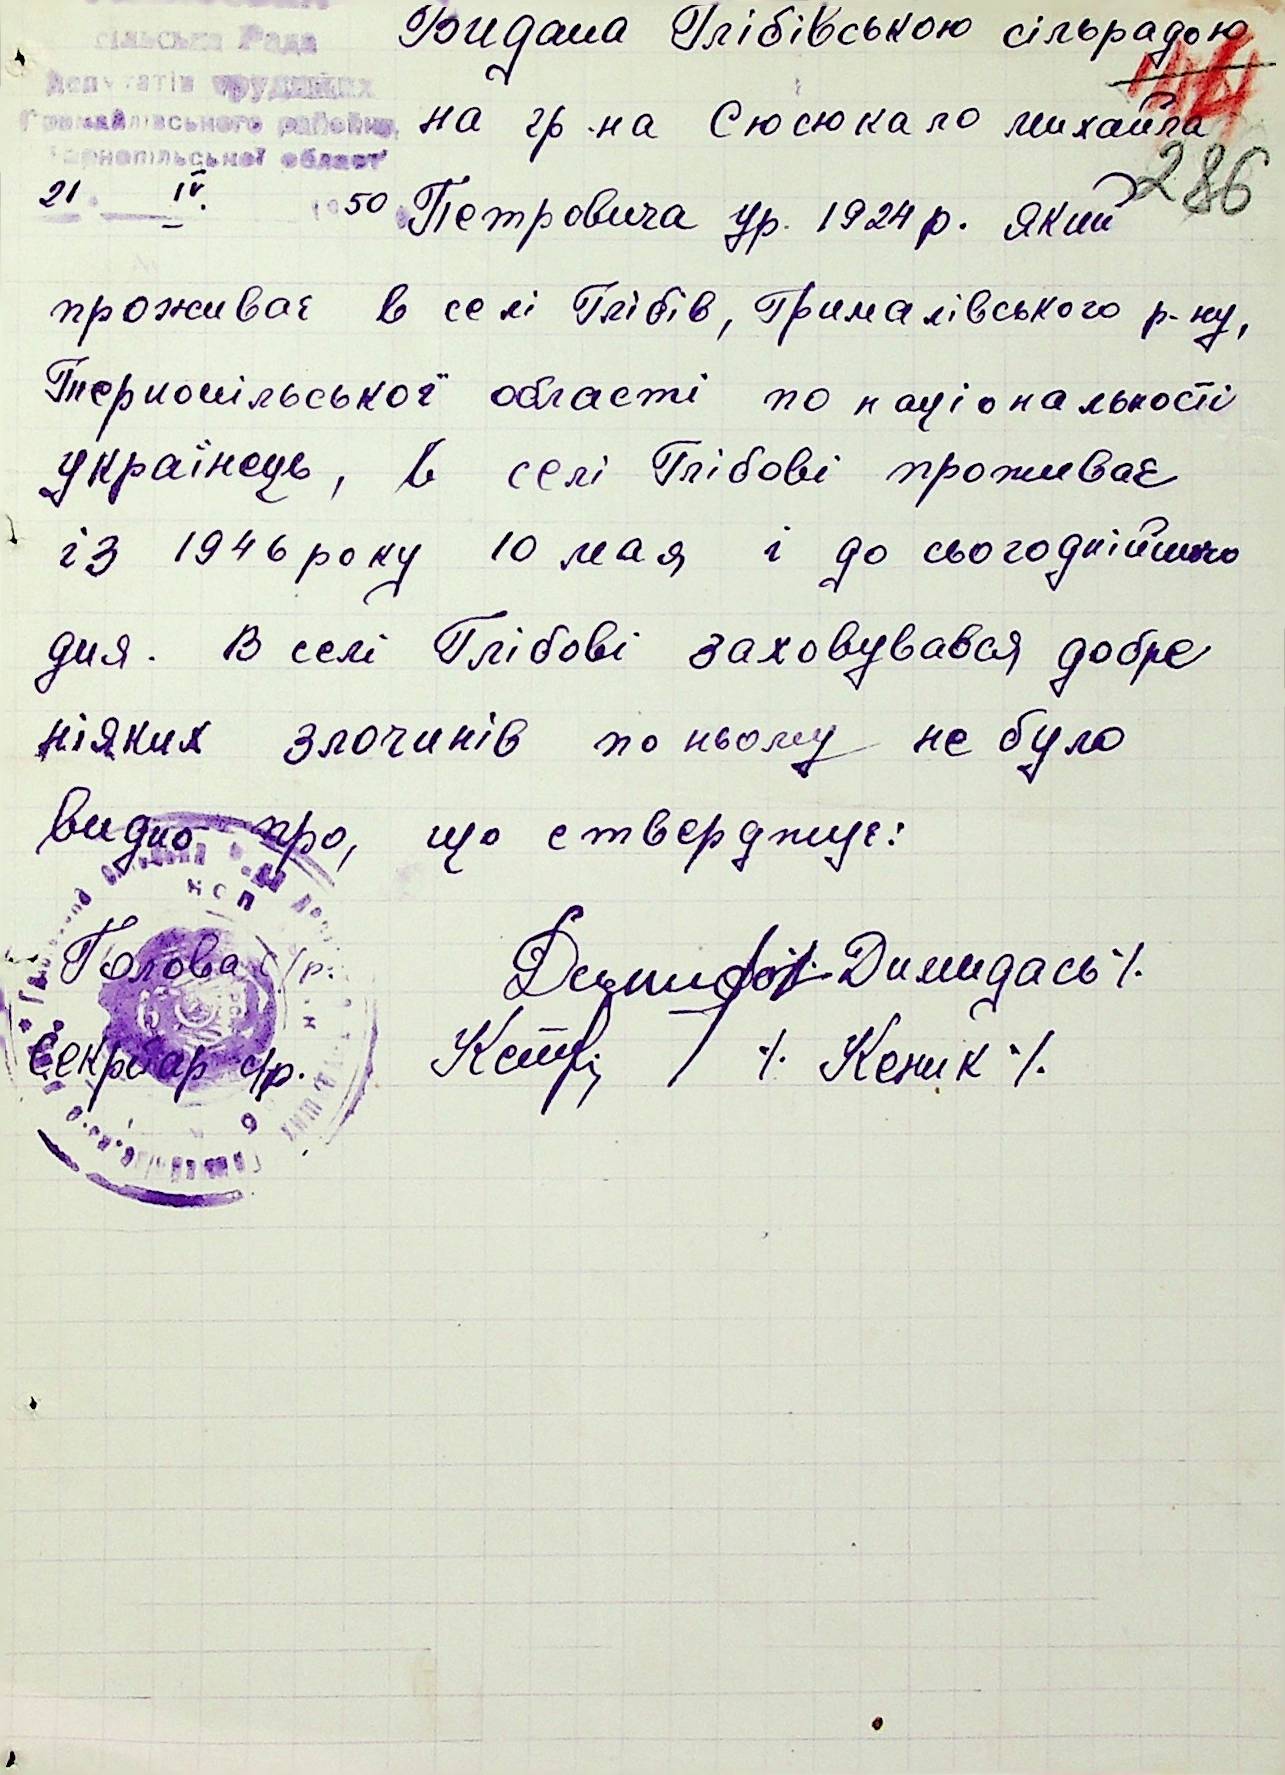 сільська Рада
депутатів трудящих
Гримайлівського району,
Тернопільської област
21 IV. 1950
Видана Глібівською сільрадою
на гр-на Сюсюкало михайла
286
Петровича ур. 1924 р. який
проживає в селі Глібів, Грималівського р-ну,
Тернопільської області по національності
українець, в селі Глібові проживає
із 1946 року 10 мая і до сьогоднійшного
дня. В селі Глібові заховувався добре
ніяких злочинів по ньому не було
видно про, що стверджує:
Голова с/р. Димидась
Секретар с/р. Кеник